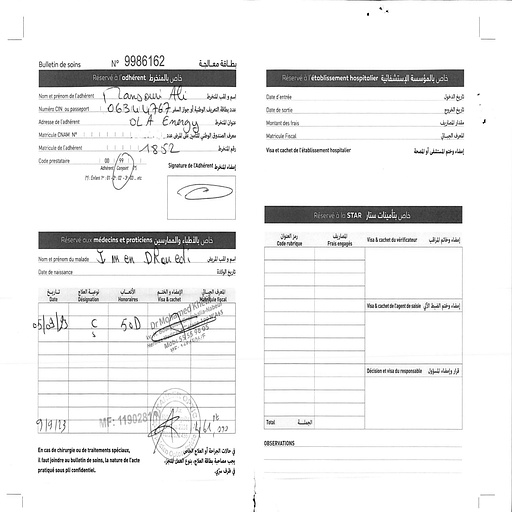 Bulletin de soins N° 9986162 بطاقة معالجة
Réservé à l'adhérent خاص بالمنخرط
Nom et prénom de l'adhérent Mansouri Ali اسم و لقب المنخرط
Numéro CIN ou passeport 06344767 عدد بطاقة التعريف الوطنية أو جواز السفر
Adresse de l'adhérent OLA Energy عنوان المنخرط
Matricule CNAM N°
Matricule de l'adhérent 1852 رقم المنخرط
Code prestataire 00 99
Adhérent Conjoint
Signature de l'Adhérent إمضاء المنخرط
Réservé aux médecins et praticiens خاص بالأطباء والممارسين
Nom et prénom du malade Imen اسم و لقب المريض
Date de naissance تاريخ الولادة
تاريخ العلاج نوعية العلاج الأتعاب الإمضاء و الختم المعرف الجبائي
Date Désignation Honoraires Visa & cachet Matricule fiscal
05/09/23 C 50D Dr Mohamed
S
9/9/23 MF: 1190281 461,000
En cas de chirurgie ou de traitements spéciaux,
il faut joindre au bulletin de soins, la nature de l'acte
pratiqué sous pli confidentiel.
في حالات الجراحة أو العلاج الخاص
يجب مصاحبة بطاقة العلاج، بنوع العمل المنجز،
في ظرف سري.
Réservé à l'établissement hospitalier خاص بالمؤسسة الإستشفائية
Date d'entrée تاريخ الدخول
Date de sortie تاريخ الخروج
Montant des frais مقدار المصاريف
Matricule Fiscal المعرف الجبائي
Visa et cachet de l'établissement hospitalier إمضاء وختم المستشفى أو المصحة
Réservé à la STAR خاص بتأمينات ستار
رمز العنوان المصاريف
Code rubrique Frais engagés Visa & cachet du vérificateur إمضاء وخاتم المراقب
Visa & cachet de l'agent de saisie إمضاء وختم الضبط الآلي
Décision et visa du responsable قرار وإمضاء المسؤول
Total الجملة
OBSERVATIONS